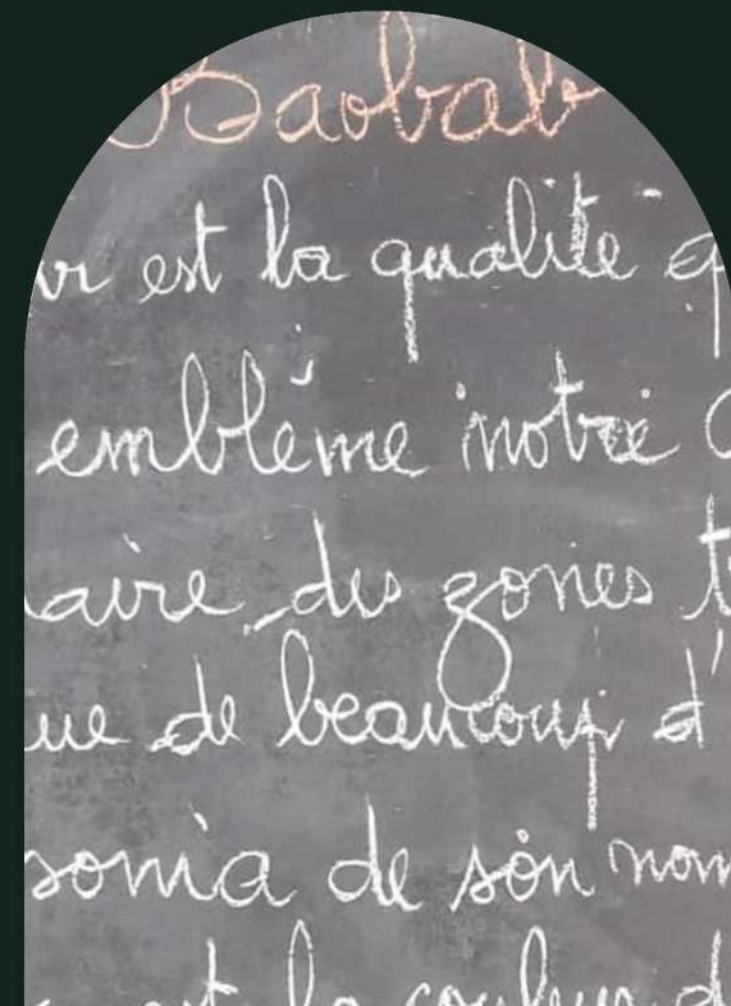 Baobab
est la qualité
emblème notre
des zones
de beaucoup d'
de son nom
est la couleur d